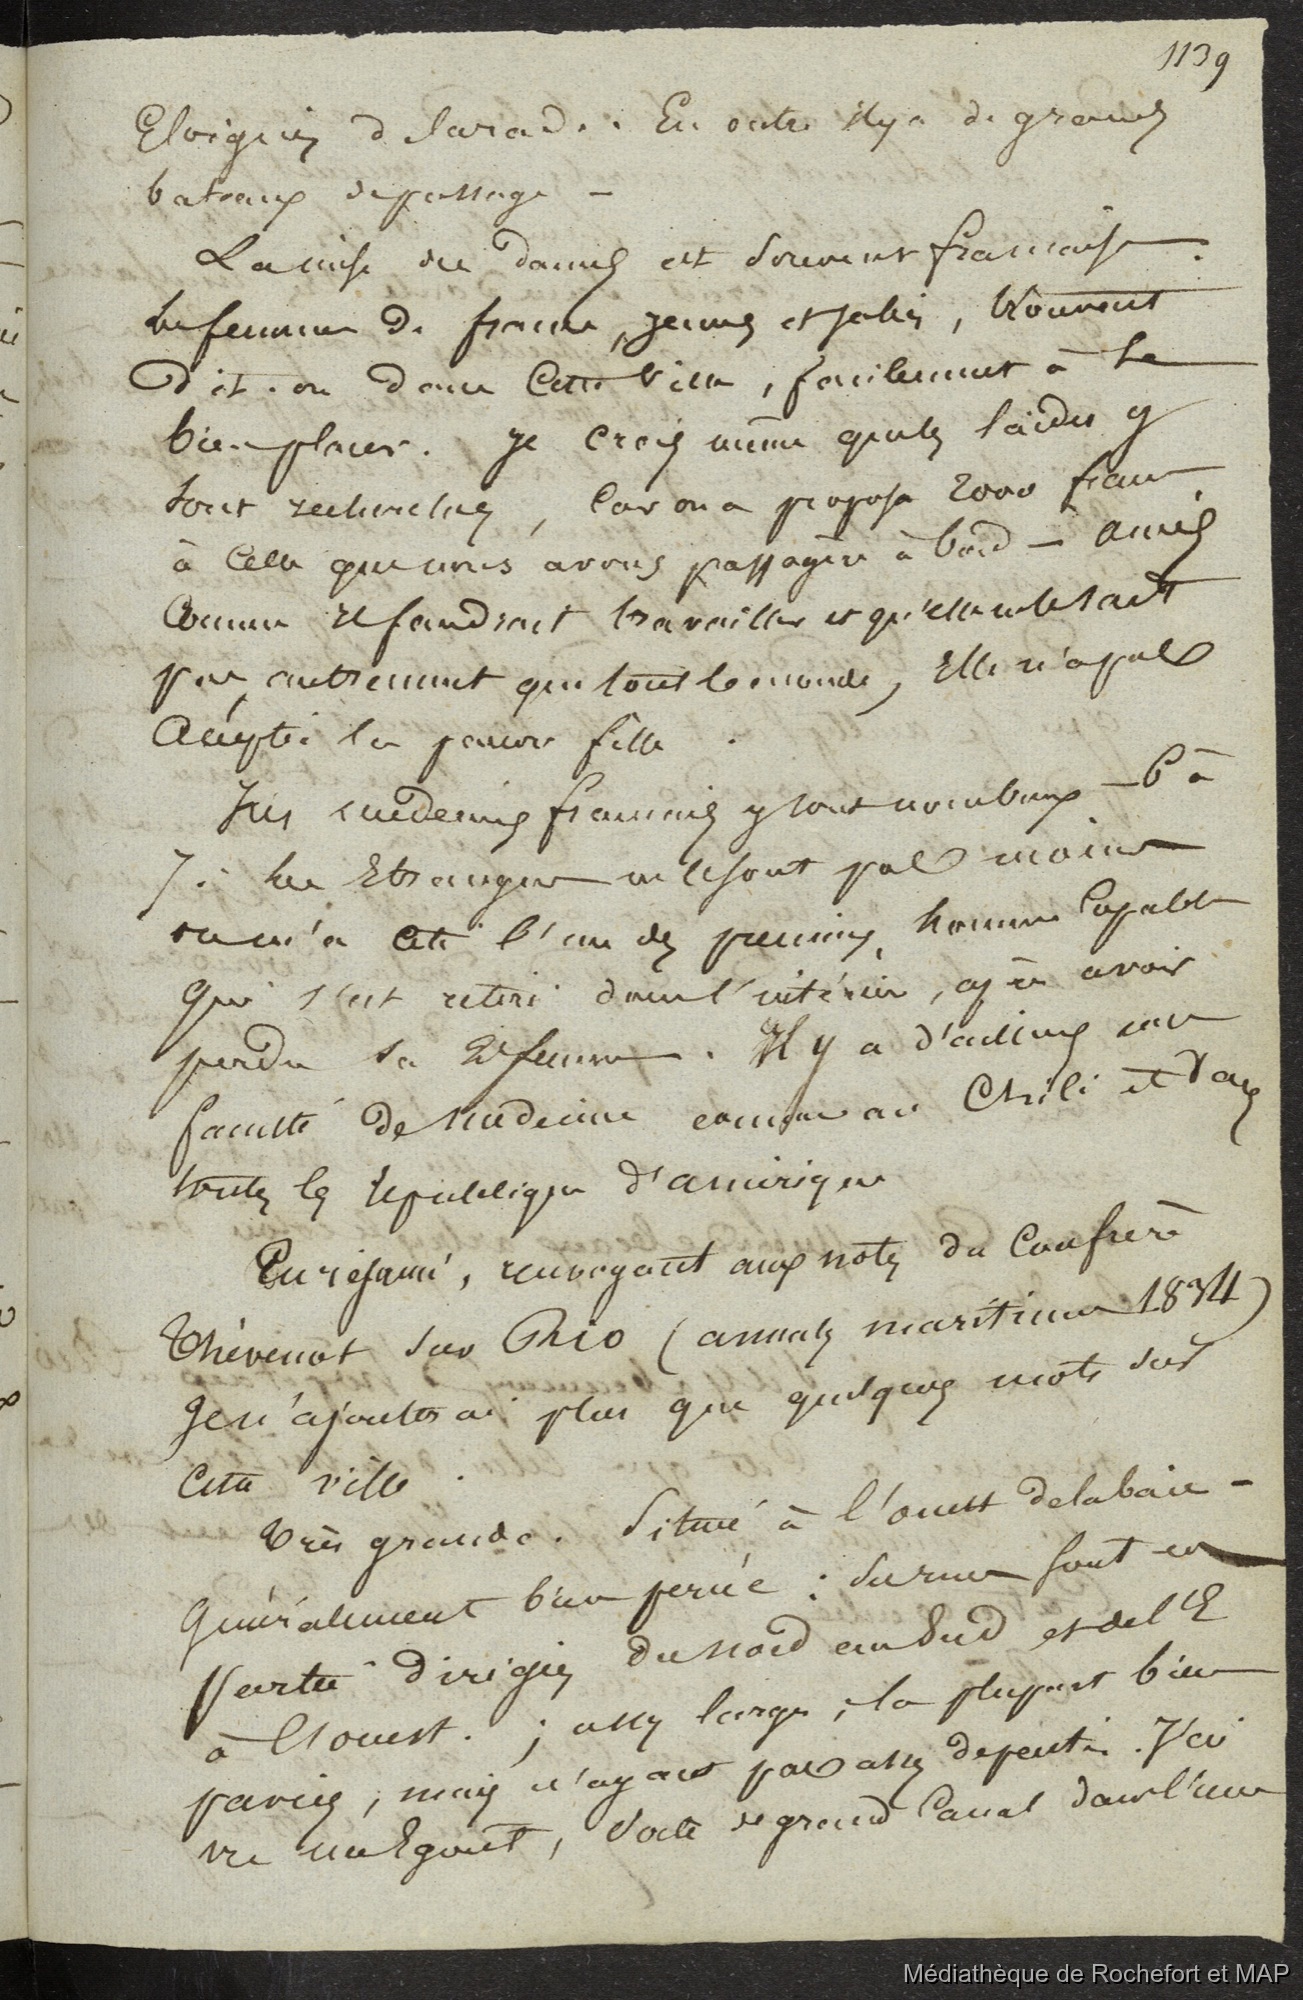 1139
Eloignés de la rade. En outre il y a de grands
bateaux de passage –
La mise des dames est souvent française.
les femmes de france, jeunes et jolies, trouvent
dit-on dans cette ville, facilement à se
bien placer. je crois même que les laides y
sont recherchées, car on a proposé 2000 francs
à celle que nous avons passagère à bord –
comme il faudrait travailler et qu'elle ne le sait
pas autrement que tout le monde, Elle n'a pas
accepté la pauvre fille.
Les médecins français y sont nombreux – 6 à
7. les Etrangers ne le sont pas moins
on m'a cité l'un des premiers, homme capable
qui s'est retiré dans l'intérieur, après avoir
perdu sa 2e femme. Il y a d'ailleurs une
faculté de médecine comme au Chili et dans
toutes les républiques d'amérique
En résumé, renvoyant aux notes du Confrère
Thévenot sur Rio (annales maritimes 1834)
je n'ajouterai plus que quelques mots sur
cette ville.
très grande. Située à l'ouest de la baie –
Généralement bien percée : ses rues sont en
partie dirigées du nord au Sud et de l'E
à l'ouest. ; assez larges ; la plupart bien
pavées, mais n'ayant pas assez de pente. J'ai
vu un Egout, sorte de grand Canal dans l'une
Médiathèque de Rochefort et MAP